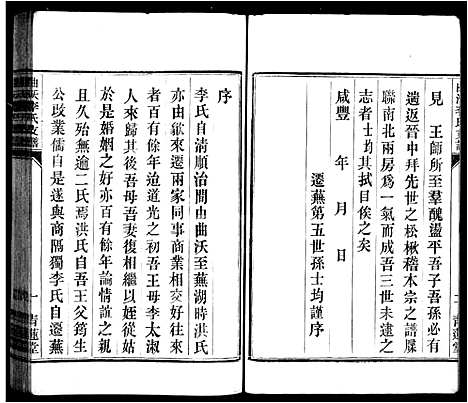 見　王師所至羣醜盪平吾子吾孫必有
遄返晉中拜先世之松楸稽本宗之譜牒
聯南北兩房爲一氣而成吾三世未逮之
志者士均其拭目俟之矣
咸豐　年　月　日
遷蕪第五世孫士均謹序
青蓮堂
序
李氏自清順治間由曲沃至蕪湖時洪氏
亦由歙來遷兩家同商業相交好往來
者有百餘年迨道光之初吾王母李太淑
人來歸其後吾母吾妻復相繼以姪從姑
於是婚姻之好亦百有餘年論情誼之親
且久殆無逾二氏焉洪氏自吾王父筠生
公改業儒自是遂與商隔獨李氏自遷蕪
曲沃李氏支譜
一
青蓮堂